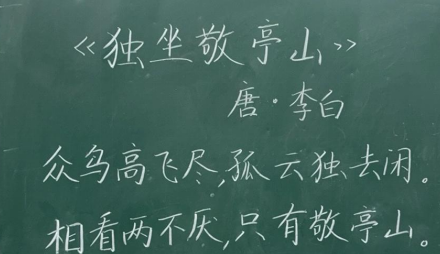 《独坐敬亭山》
唐·李白
众鸟高飞尽,孤云独去闲。
相看两不厌,只有敬亭山。